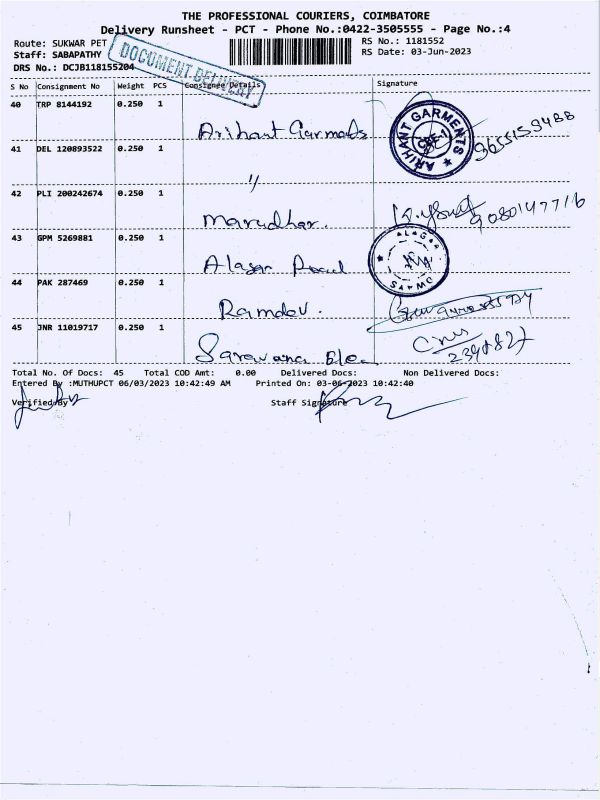 THE PROFESSIONAL COURIERS, COIMBATORE
Delivery Runsheet - PCT - Phone No.:0422-3505555 - Page No.:4
Route: SUKWAR PET
RS No.: 1181552
Staff: SABAPATHY
RS Date: 03-Jun-2023
DRS No.: DCJB118155204
DOCUMENT DELIVERY
S No Consignment No Weight PCS Consignee/Details Signature
40 TRP 8144192 0.250 1
Arihant Garments
ARIHANT GARMENTS
CBE-1
41 DEL 120893522 0.250 1
"
42 PLI 200242674 0.250 1
Marudhar.
9080147716
43 GPM 5269881 0.250 1
Alagar
44 PAK 287469 0.250 1
Ramdev.
45 JNR 11019717 0.250 1
Saravana Ele
Total No. Of Docs: 45 Total COD Amt: 0.00 Delivered Docs: Non Delivered Docs:
Entered By :MUTHUPCT 06/03/2023 10:42:49 AM Printed On: 03-06-2023 10:42:40
Verified By Staff Signature